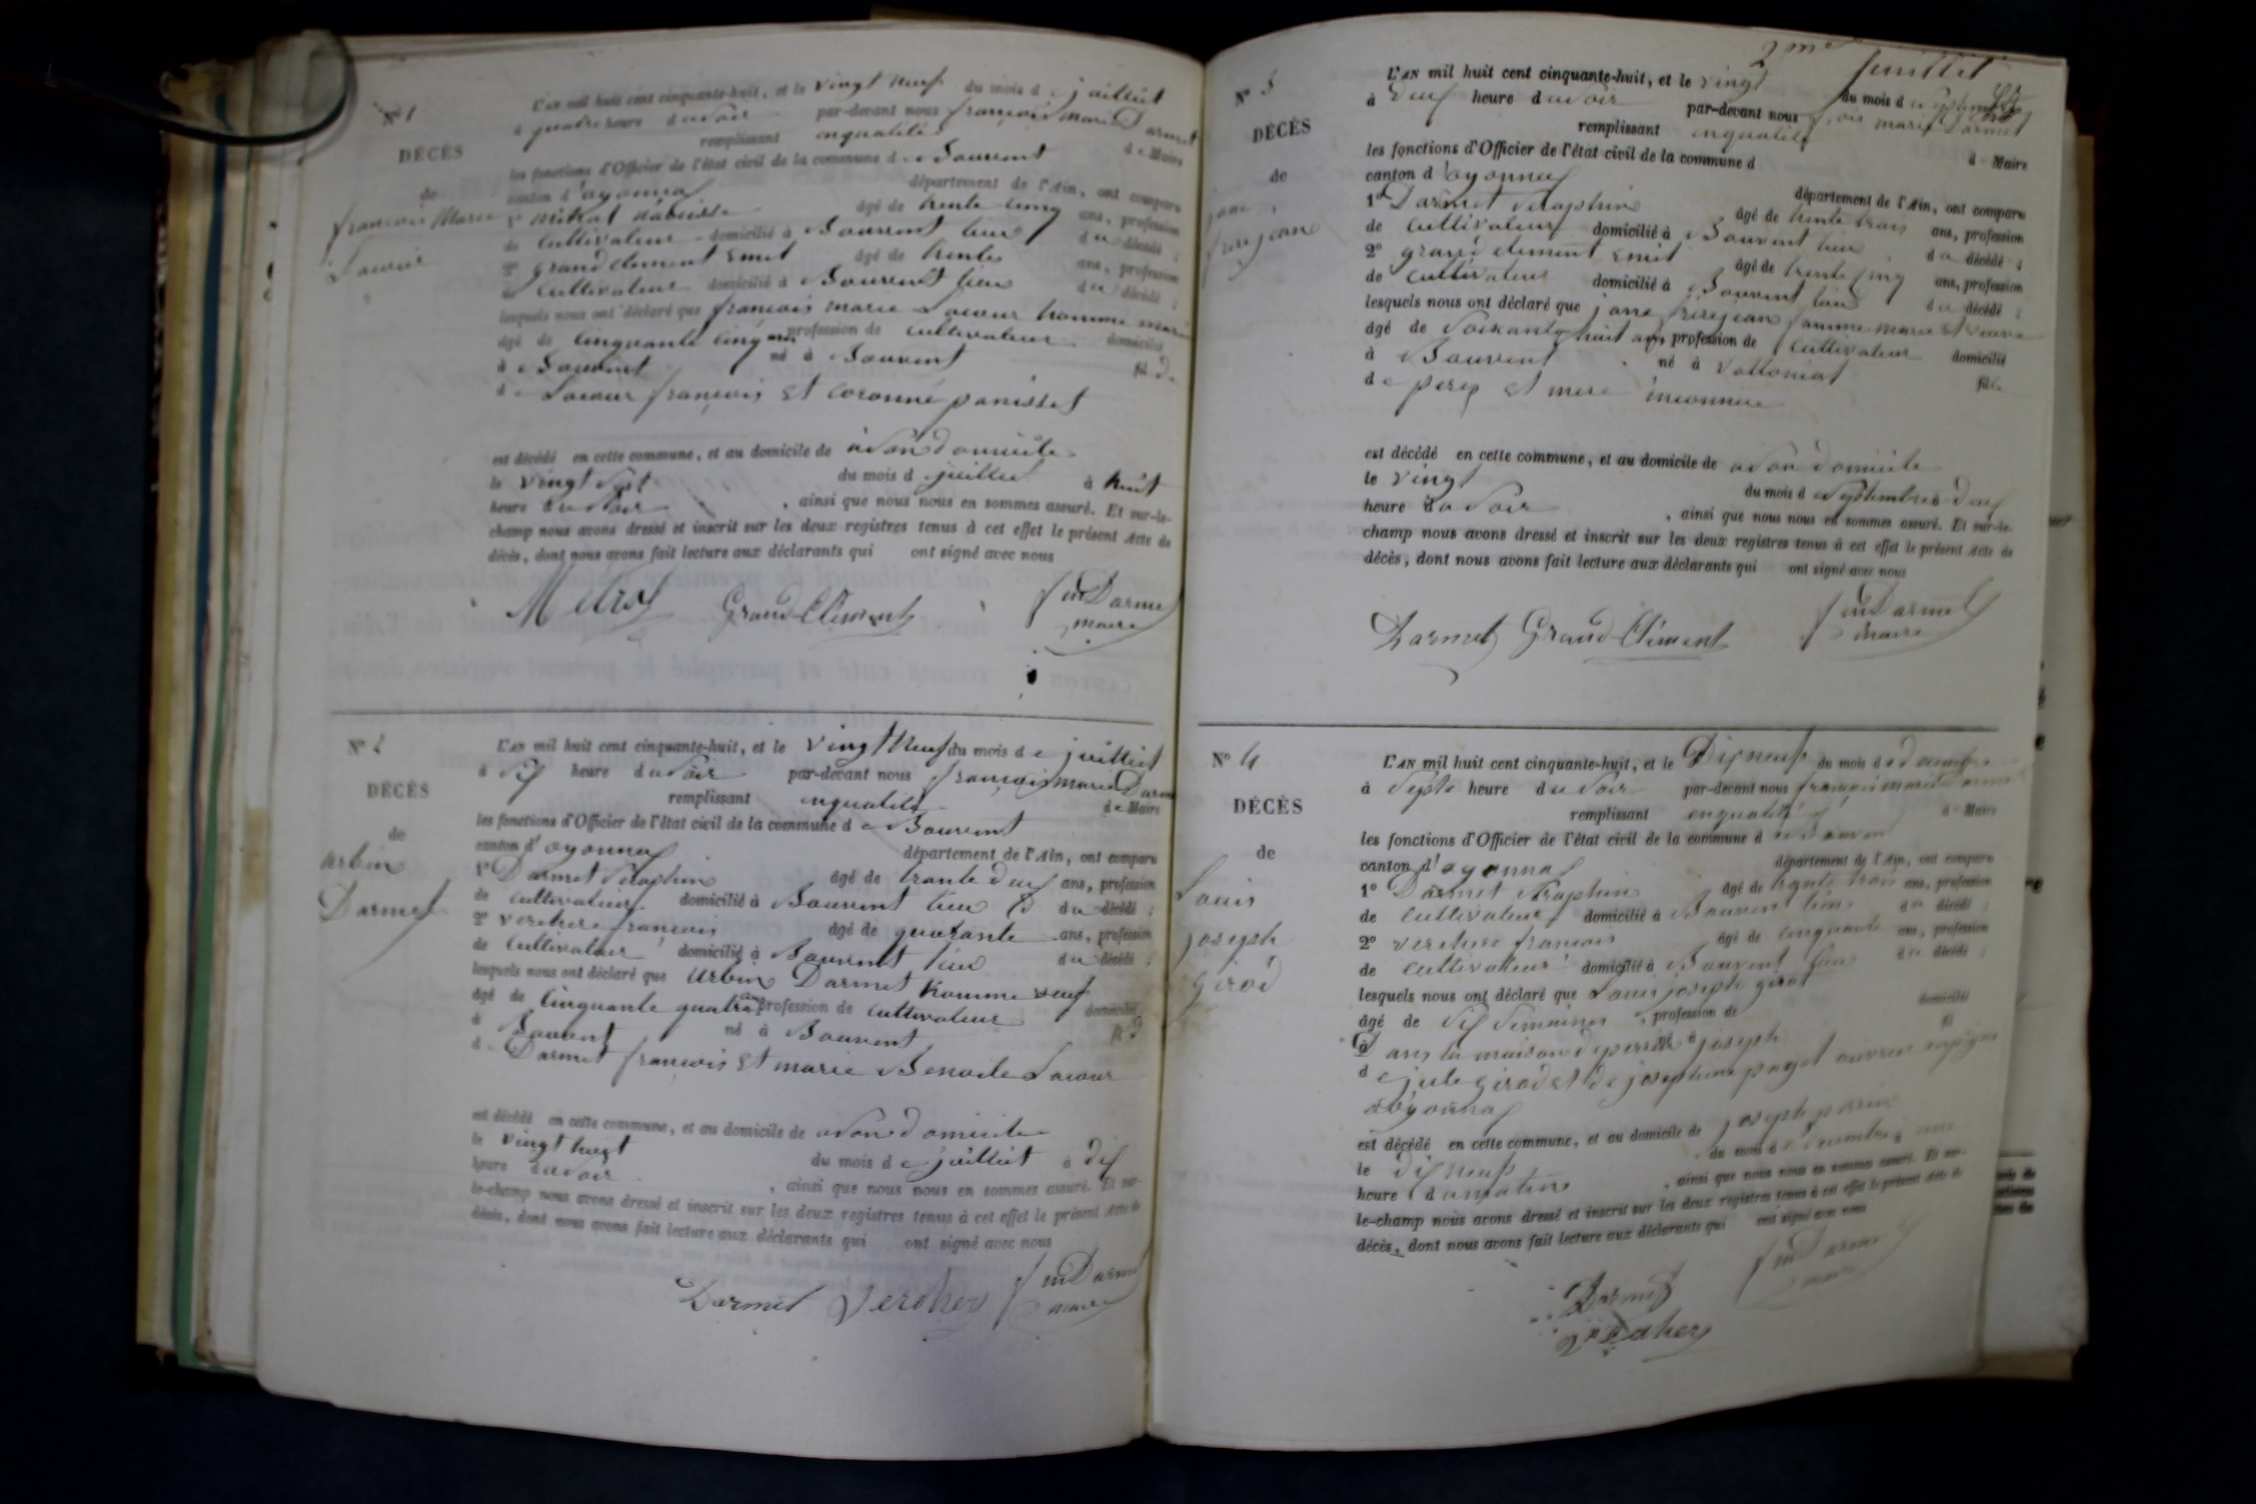 Nº 1
DÉCÈS
de
françois Marie
Lacour
L'AN mil huit cent cinquante-huit, et le vingt neuf du mois d e juilliet
à quatre heure du soir par-devant nous françois marie Darmet
remplissant enqualité de Maire
les fonctions d'Officier de l'état civil de la commune d e Bouvent
canton d'oyonnax département de l'Ain, ont comparu
âgé de trente cinq ans, profession
de Cultivateur domicilié à Bouvent lieu du décédé ;
2º grand clement Emet âgé de trente ans, profession
de Cultivateur domicilié à Bouvent lieu du décédé ;
lesquels nous ont déclaré que francois marie Lacour homme
âgé de Cinquante cinq ans profession de cultivateur domicilié
à Bouvent né à Bouvent fil
de Lacour françois et panisset
est décédé en cette commune, et au domicile de a son domicile
le vingt du mois d juillet à huit
heure du soir , ainsi que nous nous en sommes assuré. Et sur-le-
champ nous avons dressé et inscrit sur les deux registres tenus à cet effet le présent Acte de
décès, dont nous avons fait lecture aux déclarants qui ont signé avec nous
Grand Clément fm Darmet
maire
Nº 2
DÉCÈS
de
urbin
Darmet
L'AN mil huit cent cinquante-huit, et le vingt neuf du mois d e juilliet
à heure du soir par-devant nous françois marie Darm
remplissant enqualité de Maire
les fonctions d'Officier de l'état civil de la commune d e Bouvent
canton d'oyonnax département de l'Ain, ont comparu
1º Darmet Séraphin âgé de trante deux ans, profession
de cultivateur domicilié à Bouvent lieu du décédé ;
2º verchere francois âgé de quarante ans, profession
de Cultivateur domicilié à Bouvent lieu du décédé ;
lesquels nous ont déclaré que urbin Darmet homme veuf
âgé de Cinquante quatre ans profession de cultivateur domicilié
à Bouvent né à Bouvent fil
de Darmet francois Et marie Benoite Lacour
est décédé en cette commune, et au domicile de a son domicile
le vingt huit du mois d e juilliet à dix
heure du soir , ainsi que nous nous en sommes assuré. Et sur-
le-champ nous avons dressé et inscrit sur les deux registres tenus à cet effet le présent Acte de
décès, dont nous avons fait lecture aux déclarants qui ont signé avec nous
Darmet Vercher fm Darmet
maire
2me feuillet
Nº 3
DÉCÈS
de
jane
frerejean
L'AN mil huit cent cinquante-huit, et le vingt du mois d e septembre
à deux heure du soir par-devant nous marie Darmet
remplissant enqualité de Maire
les fonctions d'Officier de l'état civil de la commune d
canton d'oyonnax département de l'Ain, ont comparu
1º Darmet séraphin âgé de trente trois ans, profession
de Cultivateur domicilié à Bouvent lieu du décédé ;
2º grand clement Emet âgé de trente cinq ans, profession
de Cultivateur domicilié à Bouvent lieu du décédé ;
lesquels nous ont déclaré que jane frerejean famme marie et veuve
âgé de Soixante huit ans, profession de Cultivateur domicilié
à Bouvent né à Volloniat fil
de perez et mere inconnue
est décédé en cette commune, et au domicile de a son domicile
le vingt du mois d e Septembre a deux
heure du soir , ainsi que nous nous en sommes assuré. Et sur-le-
champ nous avons dressé et inscrit sur les deux registres tenus à cet effet le présent Acte de
décès, dont nous avons fait lecture aux déclarants qui ont signé avec nous
Darmet Grand Clément fm Darmet
maire
Nº 4
DÉCÈS
de
Louis
joseph
girod
L'AN mil huit cent cinquante-huit, et le Dix neuf du mois d e décembre
à Septe heure du soir par-devant nous françois marie Darmet
remplissant enqualité de Maire
les fonctions d'Officier de l'état civil de la commune d e Bouvent
canton d'oyonnax département de l'Ain, ont comparu
1º Darmet Séraphin âgé de trante trois ans, profession
de Cultivateur domicilié à Bouvent lieu du décédé ;
2º verchere francois âgé de cinquante ans, profession
de cultivateur domicilié à Bouvent lieu du décédé ;
lesquels nous ont déclaré que Louis joseph girod
âgé de six semaines , profession de domicilié
à Dans la maison de joseph fil
de jule girod et de josephine puget
a oyonnax
est décédé en cette commune, et au domicile de joseph
le dix neuf du mois d e décembre
heure du matin , ainsi que nous nous en sommes assuré. Et sur-
le-champ nous avons dressé et inscrit sur les deux registres tenus à cet effet le présent Acte de
décès, dont nous avons fait lecture aux déclarants qui ont signé avec nous
Darmet fm Darmet
Vercher maire